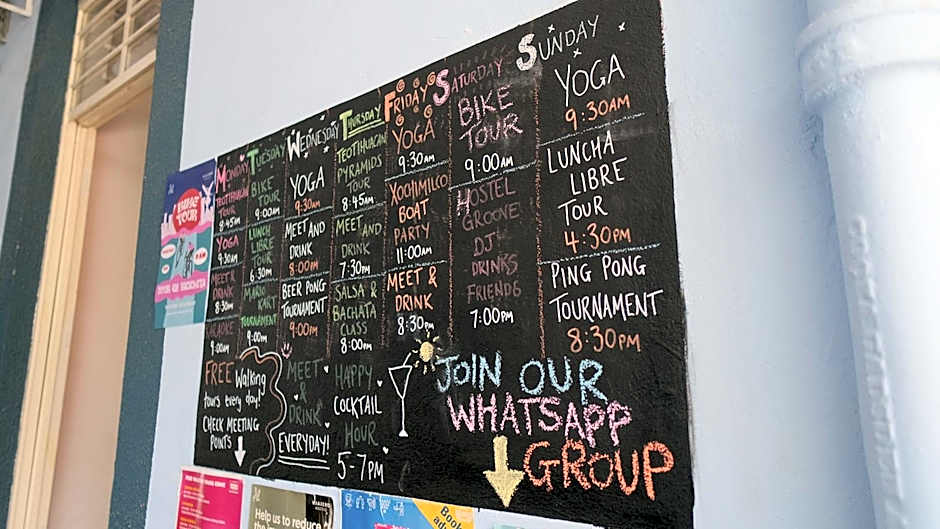 MONDAY
TEOTIHUACAN
TOUR
8:45AM
YOGA
9:30AM
MEET &
DRINK
8:30PM
KARAOKE
9:00PM
TUESDAY
BIKE
TOUR
9:00AM
LUNCH
LIBRE
TOUR
6:30PM
MARIO
KART
TOURNAMENT
9:00PM
WEDNESDAY
YOGA
9:30AM
MEET AND
DRINK
8:00PM
BEER PONG
TOURNAMENT
9:00PM
THURSDAY
TEOTIHUACAN
PYRAMIDS
TOUR
8:45AM
MEET AND
DRINK
7:30PM
SALSA &
BACHATA
CLASS
8:00PM
FRIDAY
YOGA
9:30AM
XOCHIMILCO
BOAT
PARTY
11:00AM
MEET &
DRINK
8:30PM
SATURDAY
BIKE
TOUR
9:00AM
HOSTEL
GROOVE
DJ
DRINKS
FRIENDS
7:00PM
SUNDAY
YOGA
9:30AM
LUNCHA
LIBRE
TOUR
4:30PM
PING PONG
TOURNAMENT
8:30PM
FREE Walking
tours every day!
CHECK MEETING
POINTS
MEET
&
DRINK
EVERYDAY!
HAPPY
COCKTAIL
HOUR
5-7PM
JOIN OUR
WHATSAPP
GROUP
BIKE
TOUR
Help us to reduce
the
Book